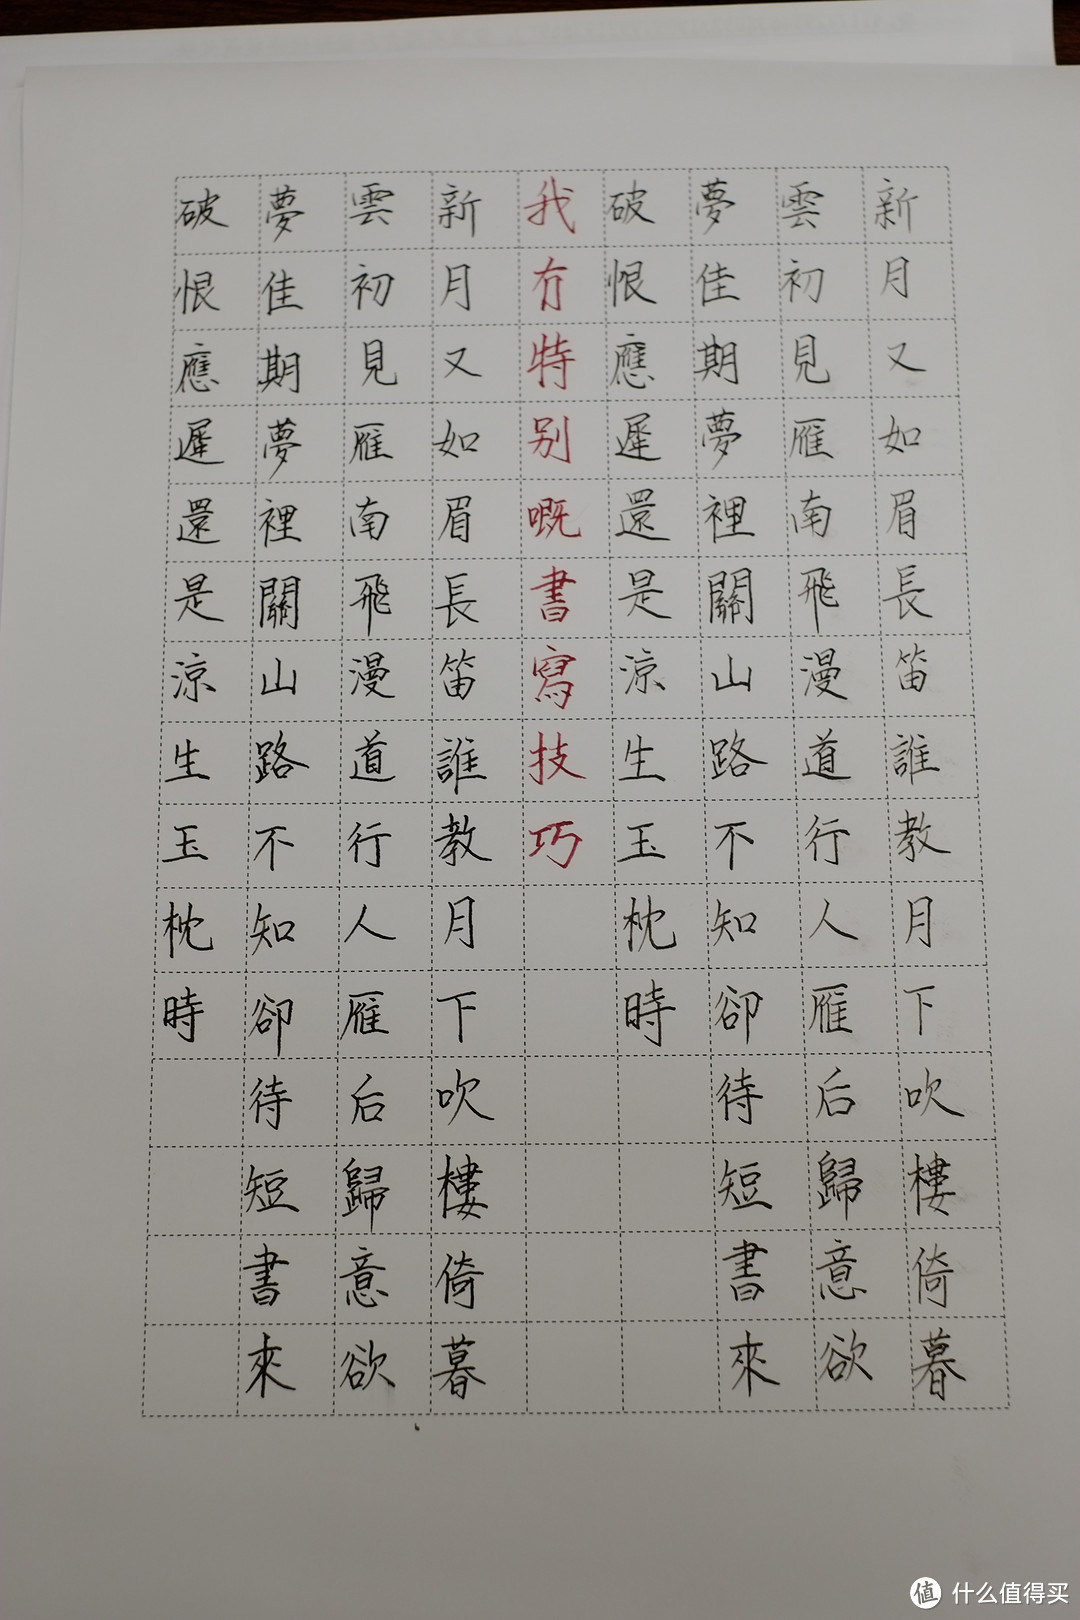 新月又如眉長笛誰教月下吹樓倚暮
雲初見雁南飛漫道行人雁后歸意欲
夢佳期夢裡關山路不知卻待短書來
破恨應遲還是涼生玉枕時
我冇特别嘅書寫技巧
新月又如眉長笛誰教月下吹樓倚暮
雲初見雁南飛漫道行人雁后歸意欲
夢佳期夢裡關山路不知卻待短書來
破恨應遲還是涼生玉枕時
值 什么值得买